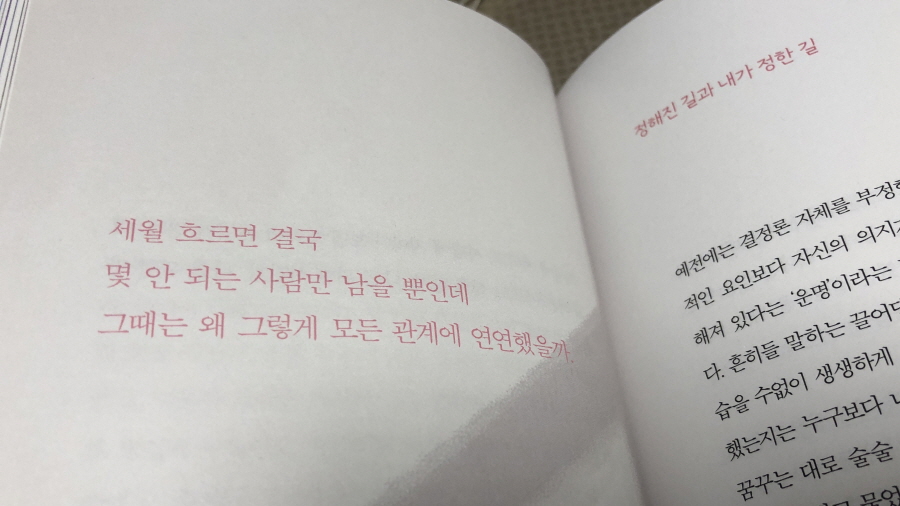 세월 흐르면 결국
몇 안 되는 사람만 남을 뿐인데
그때는 왜 그렇게 모든 관계에 연연했을까.
정해진 길과 내가 정한 길
예전에는 결정론 자체를
적인 요인보다 자신의
해져 있다는 ‘운명’이라는
다. 흔히들 말하는
습을 수없이 생생하게
했는지는 누구보다
꿈꾸는 대로 술술